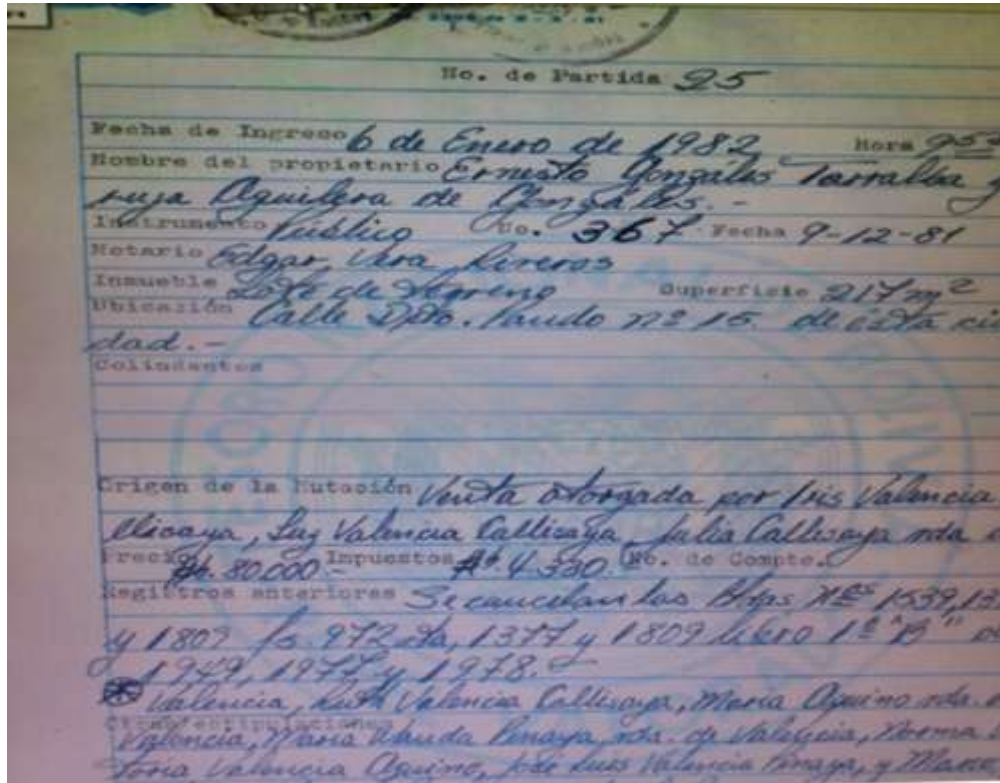 No. de Partida 25
Fecha de Ingreso 6 de Enero de 1982 Hora
Nombre del propietario Ernesto Gonzáles Tarralba y
Aguilera de Gonzáles.-
Instrumento Público No. 367 Fecha 9-12-81
Notario Edgar Vera Riveros
Inmueble Lote de terreno Superficie 217 m2
Ubicación Calle Dpto. Pando nº 15 de ésta ciu
dad.-
Colindantes
Origen de la Mutación Venta otorgada por Iris Valencia
llisaya, Luz Valencia Callisaya, Julia Callisaya vda.
Precio 80.000.- Impuestos 4.330. No. de Compte.
Registros anteriores Se cancelan las Ptdas Nos 1539,
y 1809 fs. 972 1377 y 1809 libro 1º "B"
1977 y 1978.
Valencia, Ruth Valencia Callisaya, Maria Aquino vda.
Valencia, Maria Wanda Pinaya, vda. de Valencia, Norma
Valencia Aquino, José Luis Valencia Pinaya, y